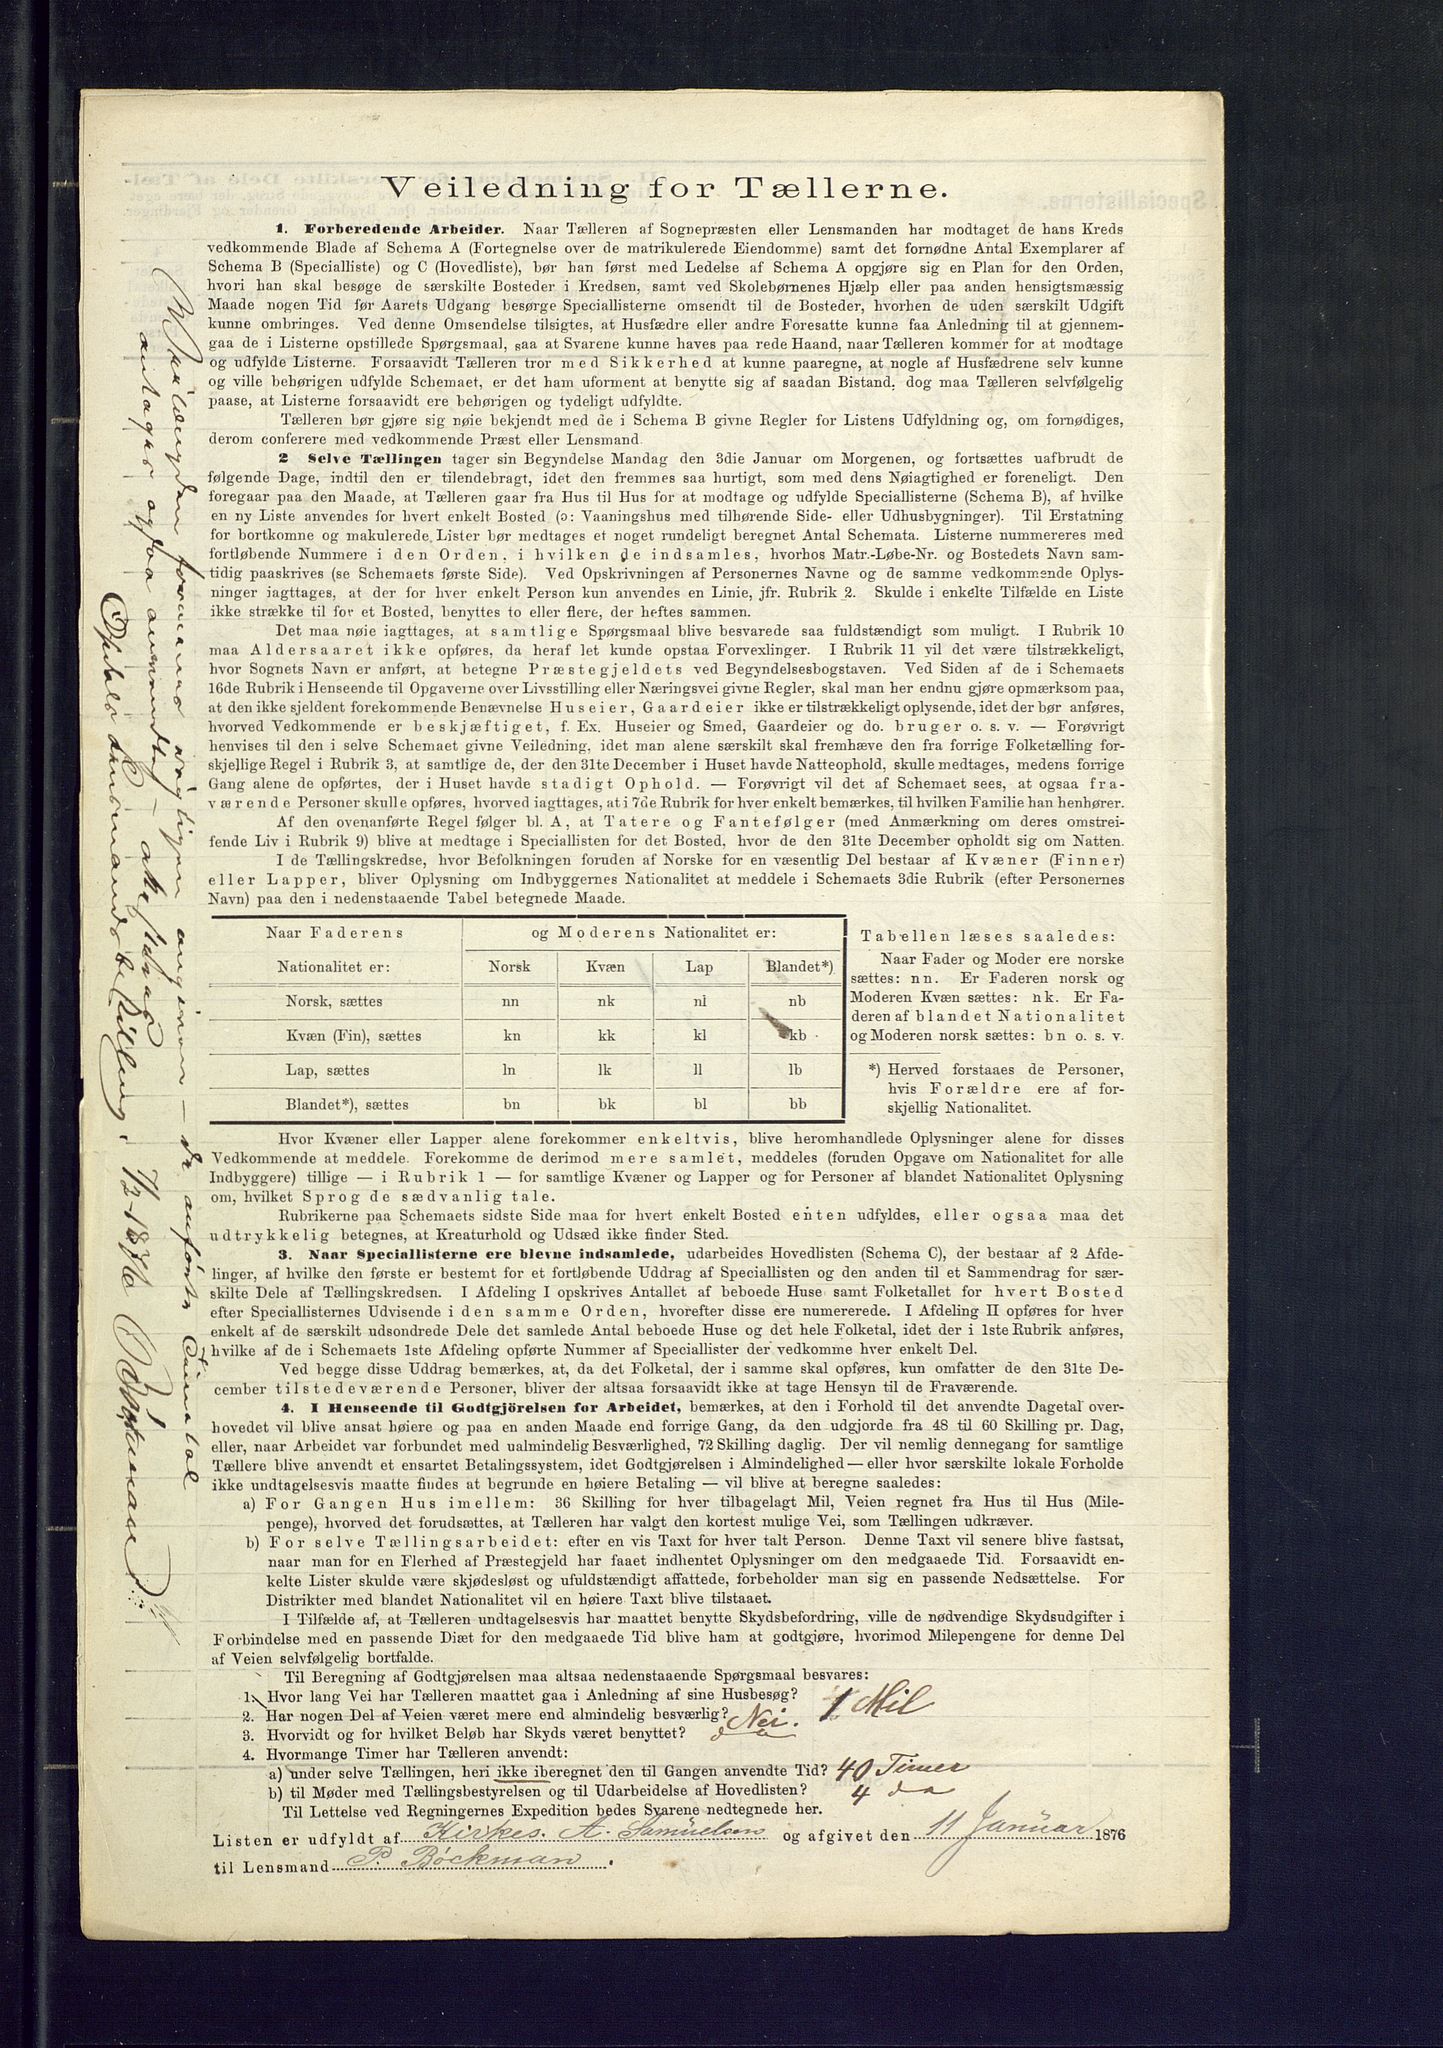 Veiledning for Tællerne.
1. Forberedende Arbeider. Naar Tælleren af Sognepræsten eller Lensmanden har modtaget de hans Kreds
vedkommende Blade af Schema A (Fortegnelse over de matrikulerede Eiendomme) samt det fornødne Antal Exemplarer af
Schema B (Specialliste) og C (Hovedliste), bør han først med Ledelse af Schema A opgjøre sig en Plan for den Orden,
hvori han skal besøge de særskilte Bosteder i Kredsen, samt ved Skolebørnenes Hjælp eller paa anden hensigtsmæssig
Maade nogen Tid før Aarets Udgang besørge Speciallisterne omsendt til de Bosteder, hvorhen de uden særskilt Udgift
kunne ombringes. Ved denne Omsendelse tilsigtes, at Husfædre eller andre Foresatte kunne faa Anledning til at gjennem-
gaa de i Listerne opstillede Spørgsmaal, saa at Svarene kunne haves paa rede Haand, naar Tælleren kommer for at modtage
og udfylde Listerne. Forsaavidt Tælleren tror med Sikkerhed at kunne paaregne, at nogle af Husfædrene selv kunne
og ville behørigen udfylde Schemaet, er det ham uforment at benytte sig af saadan Bistand, dog maa Tælleren selvfølgelig
paase, at Listerne forsaavidt ere behørigen og tydeligt udfyldte.
Tælleren bør gjøre sig nøie bekjendt med de i Schema B givne Regler for Listens Udfyldning og, om fornødiges,
derom conferere med vedkommende Præst eller Lensmand.
2 Selve Tællingen tager sin Begyndelse Mandag den 3die Januar om Morgenen, og fortsættes uafbrudt de
følgende Dage, indtil den er tilendebragt, idet den fremmes saa hurtigt, som med dens Nøiagtighed er foreneligt. Den
foregaar paa den Maade, at Tælleren gaar fra Hus til Hus for at modtage og udfylde Speciallisterne (Schema B), af hvilke
en ny Liste anvendes for hvert enkelt Bosted (ɔ: Vaaningshus med tilhørende Side- eller Udhusbygninger). Til Erstatning
for bortkomne og makulerede Lister bør medtages et noget rundeligt beregnet Antal Schemata. Listerne nummereres med
fortløbende Nummere i den Orden, i hvilken de indsamles, hvorhos Matr.-Løbe-Nr. og Bostedets Navn sam-
tidig paaskrives (se Schemaets første Side). Ved Opskrivningen af Personernes Navne og de samme vedkommende Oplys-
ninger iagttages, at der for hver enkelt Person kun anvendes en Linie, jfr. Rubrik 2. Skulde i enkelte Tilfælde en Liste
ikke strække til for et Bosted, benyttes to eller flere, der heftes sammen.
Det maa nøie iagttages, at samtlige Spørgsmaal blive besvarede saa fuldstændigt som muligt. I Rubrik 10
maa Aldersaaret ikke opføres, da heraf let kunde opstaa Forvexlinger. I Rubrik 11 vil det være tilstrækkeligt,
hvor Sognets Navn er anført, at betegne Præstegjeldets ved Begyndelsesbogstaven. Ved Siden af de i Schemaets
16de Rubrik i Henseende til Opgaverne over Livsstilling eller Næringsvei givne Regler, skal man her endnu gjøre opmærksom paa,
at den ikke sjeldent forekommende Benævnelse Huseier, Gaardeier ikke er tilstrækkeligt oplysende, idet der bør anføres,
hvorved Vedkommende er beskjæftiget, f. Ex. Huseier og Smed, Gaardeier og do. bruger o. s. v. — Forøvrigt
henvises til den i selve Schemaet givne Veiledning, idet man alene særskilt skal fremhæve den fra forrige Folketælling for-
skjellige Regel i Rubrik 3, at samtlige de, der den 31te December i Huset havde Natteophold, skulle medtages, medens forrige
Gang alene de opførtes, der i Huset havde stadigt Ophold. — Forøvrigt vil det af Schemaet sees, at ogsaa fra-
værende Personer skulle opføres, hvorved iagttages, at i 7de Rubrik for hver enkelt bemærkes, til hvilken Familie han henhører.
Af den ovenanførte Regel følger bl. A, at Tatere og Fantefølger (med Anmærkning om deres omstrei-
fende Liv i Rubrik 9) blive at medtage i Speciallisten for det Bosted, hvor de den 31te December opholdt sig om Natten.
I de Tællingskredse, hvor Befolkningen foruden af Norske for en væsentlig Del bestaar af Kvæner (Finner)
eller Lapper, bliver Oplysning om Indbyggernes Nationalitet at meddele i Schemaets 3die Rubrik (efter Personernes
Navn) paa den i nedenstaaende Tabel betegnede Maade.
Naar Faderens og Moderens Nationalitet er:
Nationalitet er: Norsk Kvæn Lap Blandet*)
Norsk, sættes nn nk nl nb
Kvæn (Fin), sættes kn kk kl kb
Lap, sættes ln lk ll lb
Blandet*), sættes bn bk bl bb
Tabellen læses saaledes:
Naar Fader og Moder ere norske
sættes: nn. Er Faderen norsk og
Moderen Kvæn sættes: nk. Er Fa-
deren af blandet Nationalitet
og Moderen norsk sættes: bn o. s. v.
*) Herved forstaaes de Personer,
hvis Forældre ere af for-
skjellig Nationalitet.
Hvor Kvæner eller Lapper alene forekommer enkeltvis, blive heromhandlede Oplysninger alene for disses
Vedkommende at meddele. Forekomme de derimod mere samlet, meddeles (foruden Opgave om Nationalitet for alle
Indbyggere) tillige — i Rubrik 1 — for samtlige Kvæner og Lapper og for Personer af blandet Nationalitet Oplysning
om, hvilket Sprog de sædvanlig tale.
Rubrikerne paa Schemaets sidste Side maa for hvert enkelt Bosted enten udfyldes, eller ogsaa maa det
udtrykkelig betegnes, at Kreaturhold og Udsæd ikke finder Sted.
3. Naar Speciallisterne ere blevne indsamlede, udarbeides Hovedlisten (Schema C), der bestaar af 2 Afde-
linger, af hvilke den første er bestemt for et fortløbende Uddrag af Speciallisten og den anden til et Sammendrag for sær-
skilte Dele af Tællingskredsen. I Afdeling I opskrives Antallet af beboede Huse samt Folketallet for hvert Bosted
efter Speciallisternes Udvisende i den samme Orden, hvorefter disse ere numererede. I Afdeling II opføres for hver
enkelt af de særskilt udsondrede Dele det samlede Antal beboede Huse og det hele Folketal, idet der i 1ste Rubrik anføres,
hvilke af de i Schemaets 1ste Afdeling opførte Nummer af Speciallister der vedkomme hver enkelt Del.
Ved begge disse Uddrag bemærkes, at, da det Folketal, der i samme skal opføres, kun omfatter de den 31te De-
cember tilstedeværende Personer, bliver der altsaa forsaavidt ikke at tage Hensyn til de Fraværende.
4. I Henseende til Godtgjörelsen for Arbeidet, bemærkes, at den i Forhold til det anvendte Dagetal over-
hovedet vil blive ansat høiere og paa en anden Maade end forrige Gang, da den udgjorde fra 48 til 60 Skilling pr. Dag,
eller, naar Arbeidet var forbundet med ualmindelig Besværlighed, 72 Skilling daglig. Der vil nemlig dennegang for samtlige
Tællere blive anvendt et ensartet Betalingssystem, idet Godtgjørelsen i Almindelighed — eller hvor særskilte lokale Forholde
ikke undtagelsesvis maatte findes at begrunde en høiere Betaling — vil blive at beregne saaledes:
a) For Gangen Hus imellem: 36 Skilling for hver tilbagelagt Mil, Veien regnet fra Hus til Hus (Mile-
penge), hvorved det forudsættes, at Tælleren har valgt den kortest mulige Vei, som Tællingen udkræver.
b) For selve Tællingsarbeidet: efter en vis Taxt for hver talt Person. Denne Taxt vil senere blive fastsat,
naar man for en Flerhed af Præstegjeld har faaet indhentet Oplysninger om den medgaaede Tid. Forsaavidt en-
kelte Lister skulde være skjødesløst og ufuldstændigt affattede, forbeholder man sig en passende Nedsættelse. For
Distrikter med blandet Nationalitet vil en høiere Taxt blive tilstaaet.
I Tilfælde af, at Tælleren undtagelsesvis har maattet benytte Skydsbefordring, ville de nødvendige Skydsudgifter i
Forbindelse med en passende Diæt for den medgaaede Tid blive ham at godtgjøre, hvorimod Milepengene for denne Del
af Veien selvfølgelig bortfalde.
Til Beregning af Godtgjørelsen maa altsaa nedenstaaende Spørgsmaal besvares:
1. Hvor lang Vei har Tælleren maattet gaa i Anledning af sine Husbesøg? 1 Mil
2. Har nogen Del af Veien været mere end almindelig besværlig? Nei.
3. Hvorvidt og for hvilket Beløb har Skyds været benyttet? do
4. Hvormange Timer har Tælleren anvendt:
a) under selve Tællingen, heri ikke iberegnet den til Gangen anvendte Tid? 40 Timer
b) til Møder med Tællingsbestyrelsen og til Udarbeidelse af Hovedlisten? 4 do
Til Lettelse ved Regningernes Expedition bedes Svarene nedtegnede her.
Listen er udfyldt af Kirkes. A. Samüelsen og afgivet den 11 Januar 1876
til Lensmand P. Böckman.
Veilængden formenes rigtigen angiven — de anførte Timetal
antages ogsaa
1/2-1876